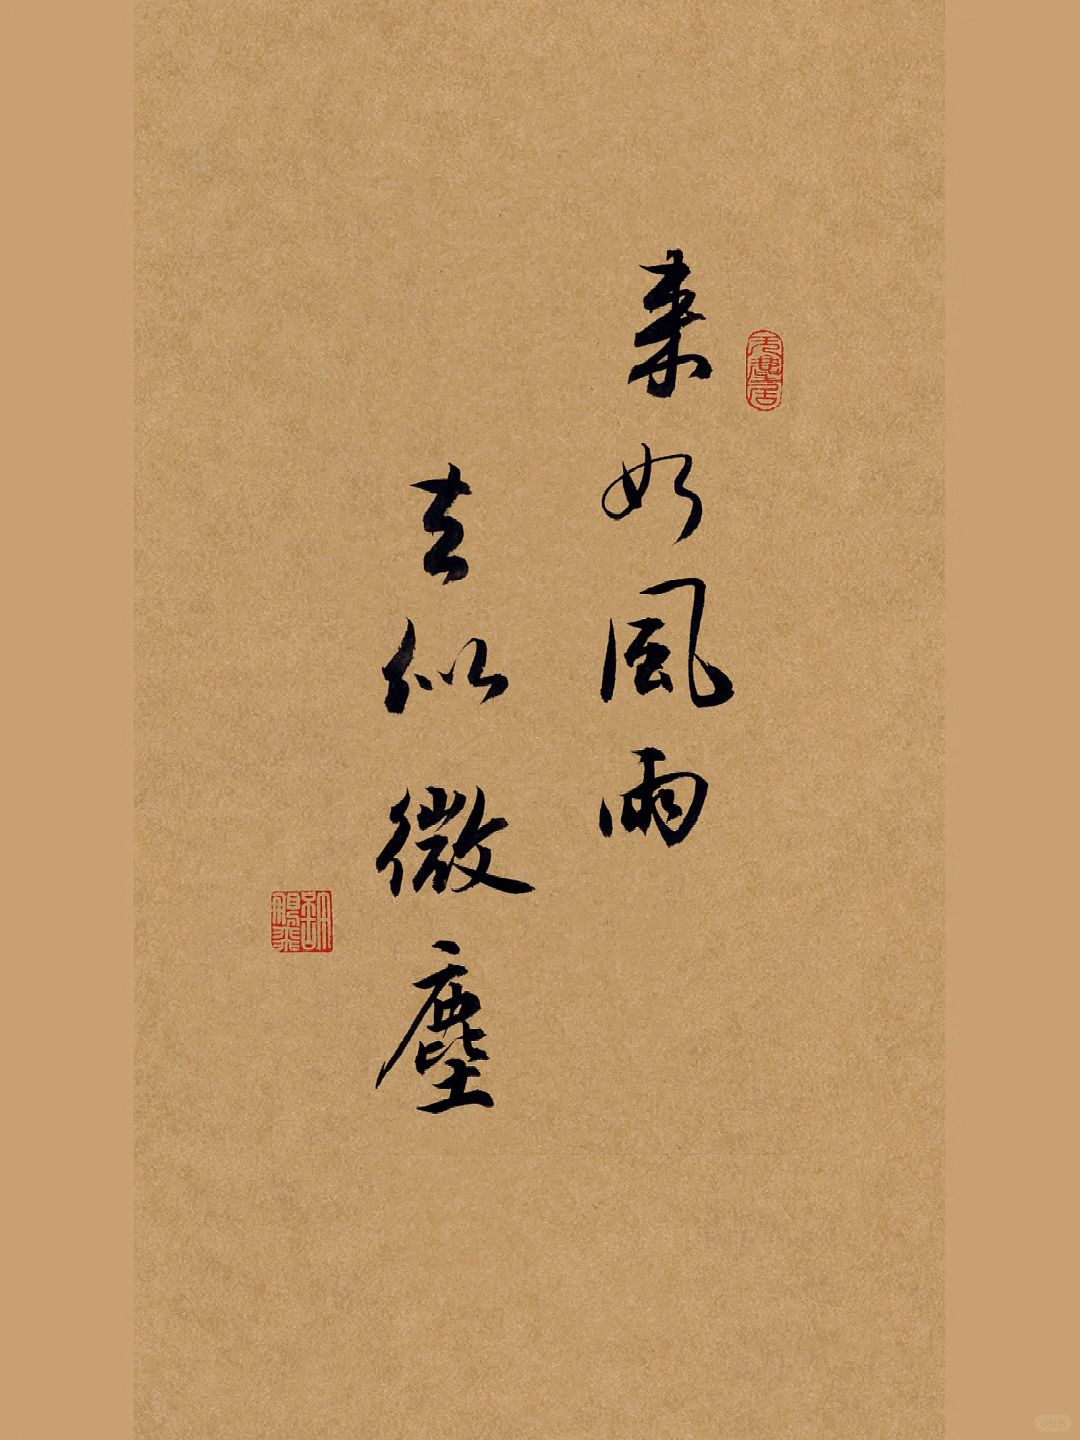 来如風雨
去似微塵